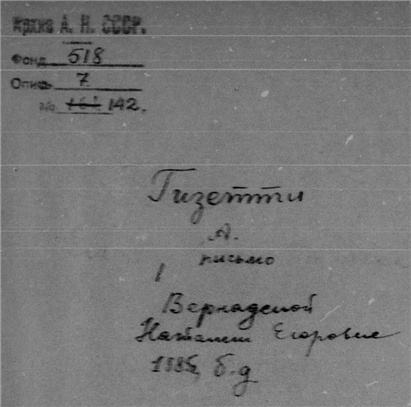 Архив А. Н. СССР.
Фонд 518
Опись 7
No 161 142.
Гизетти
А.
письмо
1
Вернадской
Наталии Егоровне
188 б.д